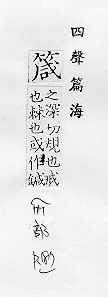 四聲篇海
箴
之深切規也
也也或作鍼
竹部